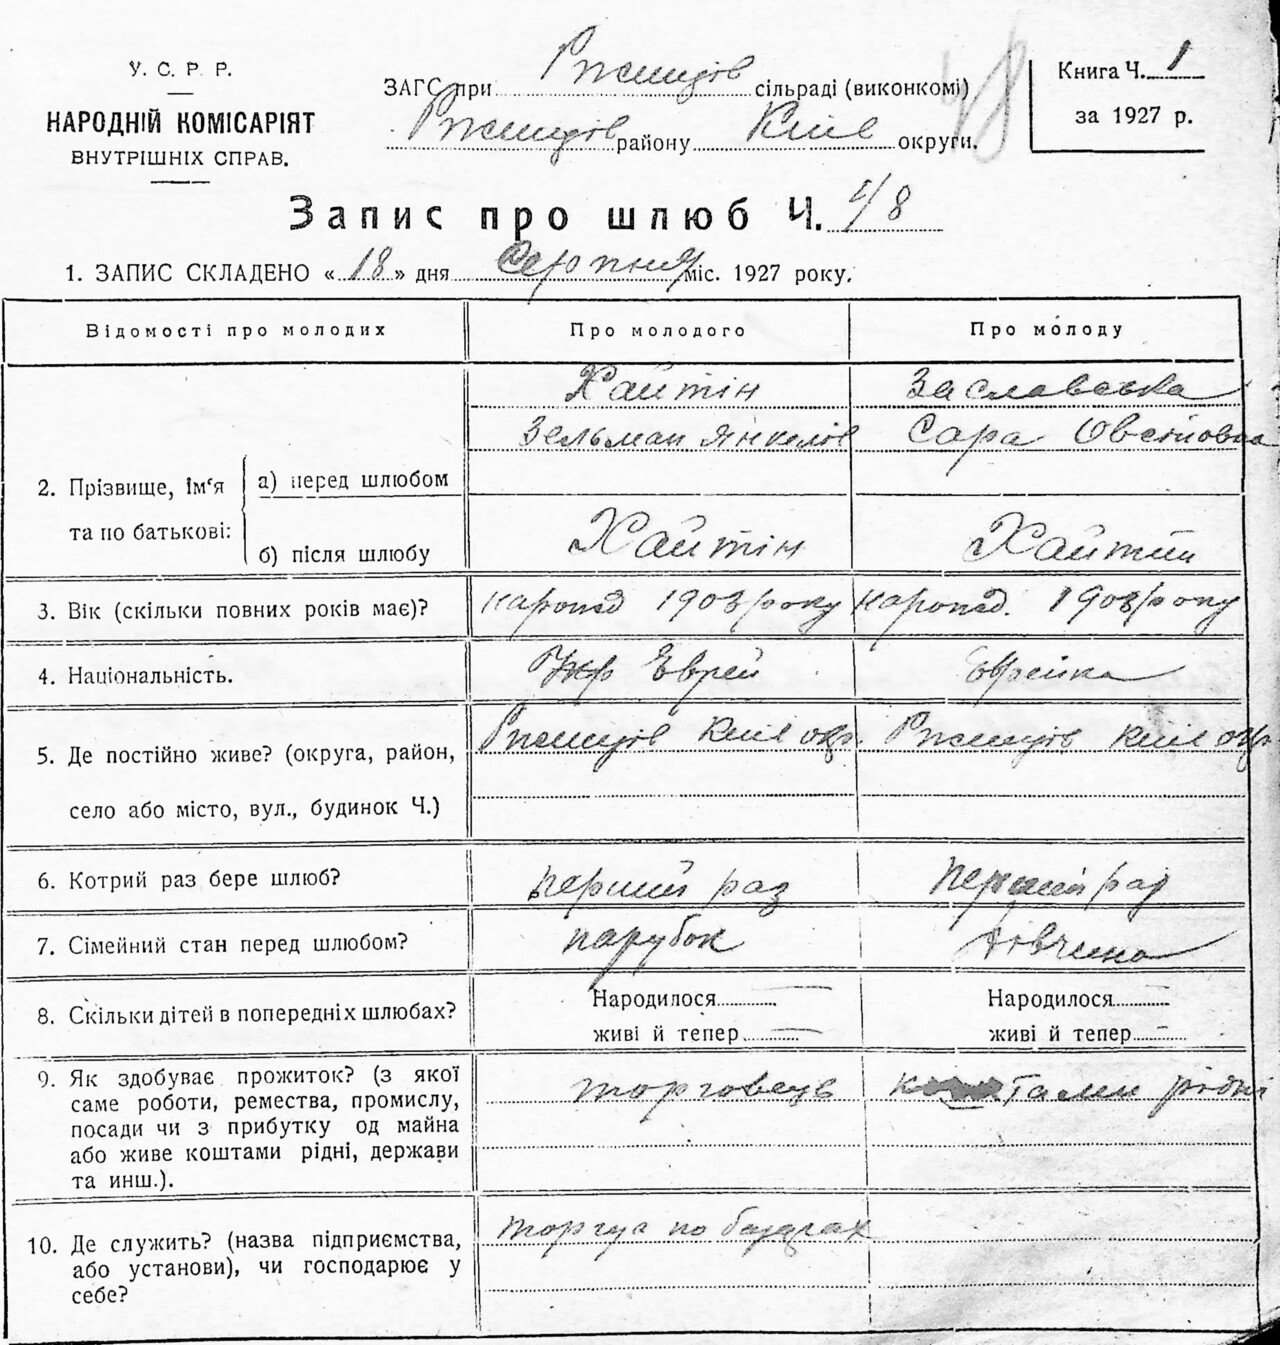 У. С. Р. Р.
НАРОДНІЙ КОМІСАРІЯТ
ВНУТРІШНІХ СПРАВ.
ЗАГС при Ржищів сільраді (виконкомі)
Ржищів району Київ округи.
Книга Ч. 1
за 1927 р.
48
Запис про шлюб Ч. 48
1. ЗАПИС СКЛАДЕНО « 18 » дня Серпня міс. 1927 року.
Відомості про молодих Про молодого Про молоду
Хайтін Заславська
Зельман Янкелів Сара Овсіївна
2. Прізвище, ім'я та по батькові: а) перед шлюбом
б) після шлюбу Хайтін Хайтин
3. Вік (скільки повних років має)? народ 1903 року народ. 1903 року
4. Національність. Укр Еврей Еврейка
5. Де постійно живе? (округа, район, Ржищів Київ окр. Ржищів Київ окр.
село або місто, вул., будинок Ч.)
6. Котрий раз бере шлюб? перший раз перший раз
7. Сімейний стан перед шлюбом? парубок дівчина
8. Скільки дітей в попередніх шлюбах? Народилося — Народилося —
живі й тепер — живі й тепер —
9. Як здобуває прожиток? (з якої торговець тами рідні
саме роботи, ремества, промислу,
посади чи з прибутку од майна
або живе коштами рідні, держави
та инш.).
10. Де служить? (назва підприємства, торгує по базарах
або установи), чи господарює у
себе?